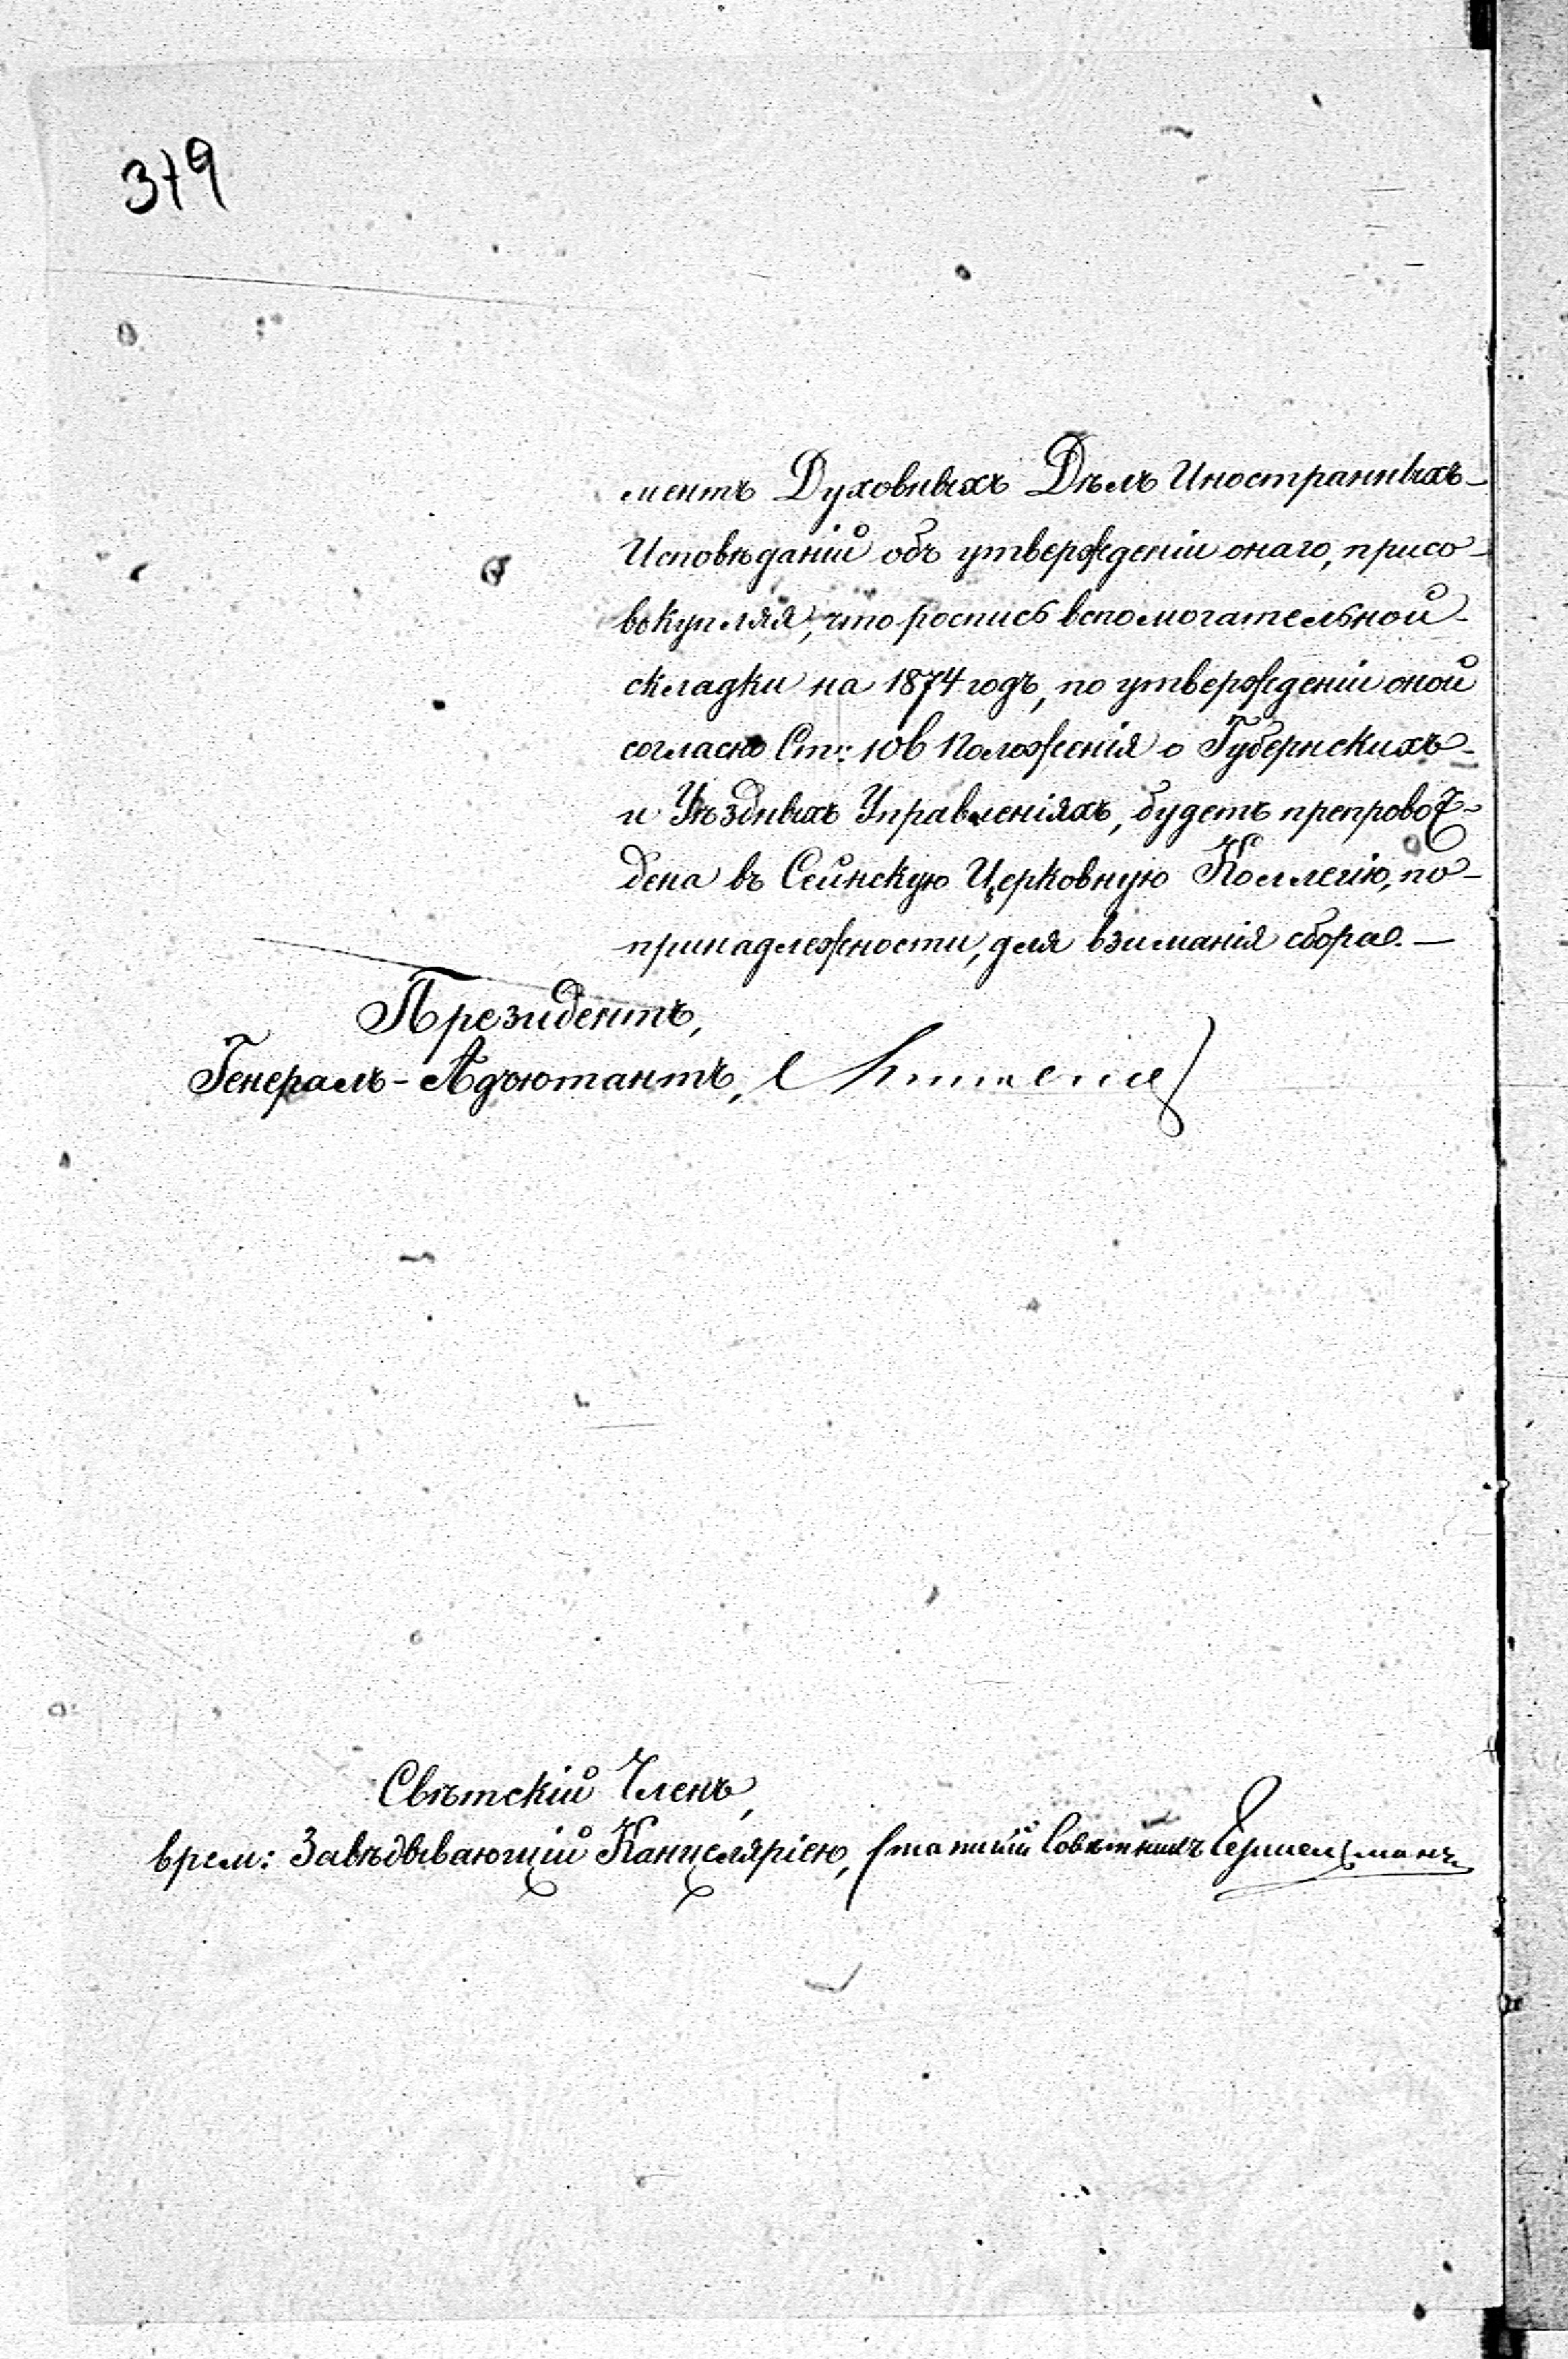 379
ментъ Духовныхъ Дѣлъ Иностранныхъ
Исповѣданій объ утвержденіи онаго, присо-
вокупляя, что роспись вспомогательной
складки на 1874 годъ, по утвержденіи оной
согласно Ст: 10 в Положенія о Губернскихъ
и Уѣздныхъ Управленіяхъ, будетъ препровож-
дена въ Сейнскую Церковную Коллегію, по
принадлежности, для взиманія сбора. —
Президентъ,
Генералъ-Адъютантъ,
Свѣтскій Членъ,
врем: Завѣдывающій Канцеляріею, Статскій Совѣтникъ